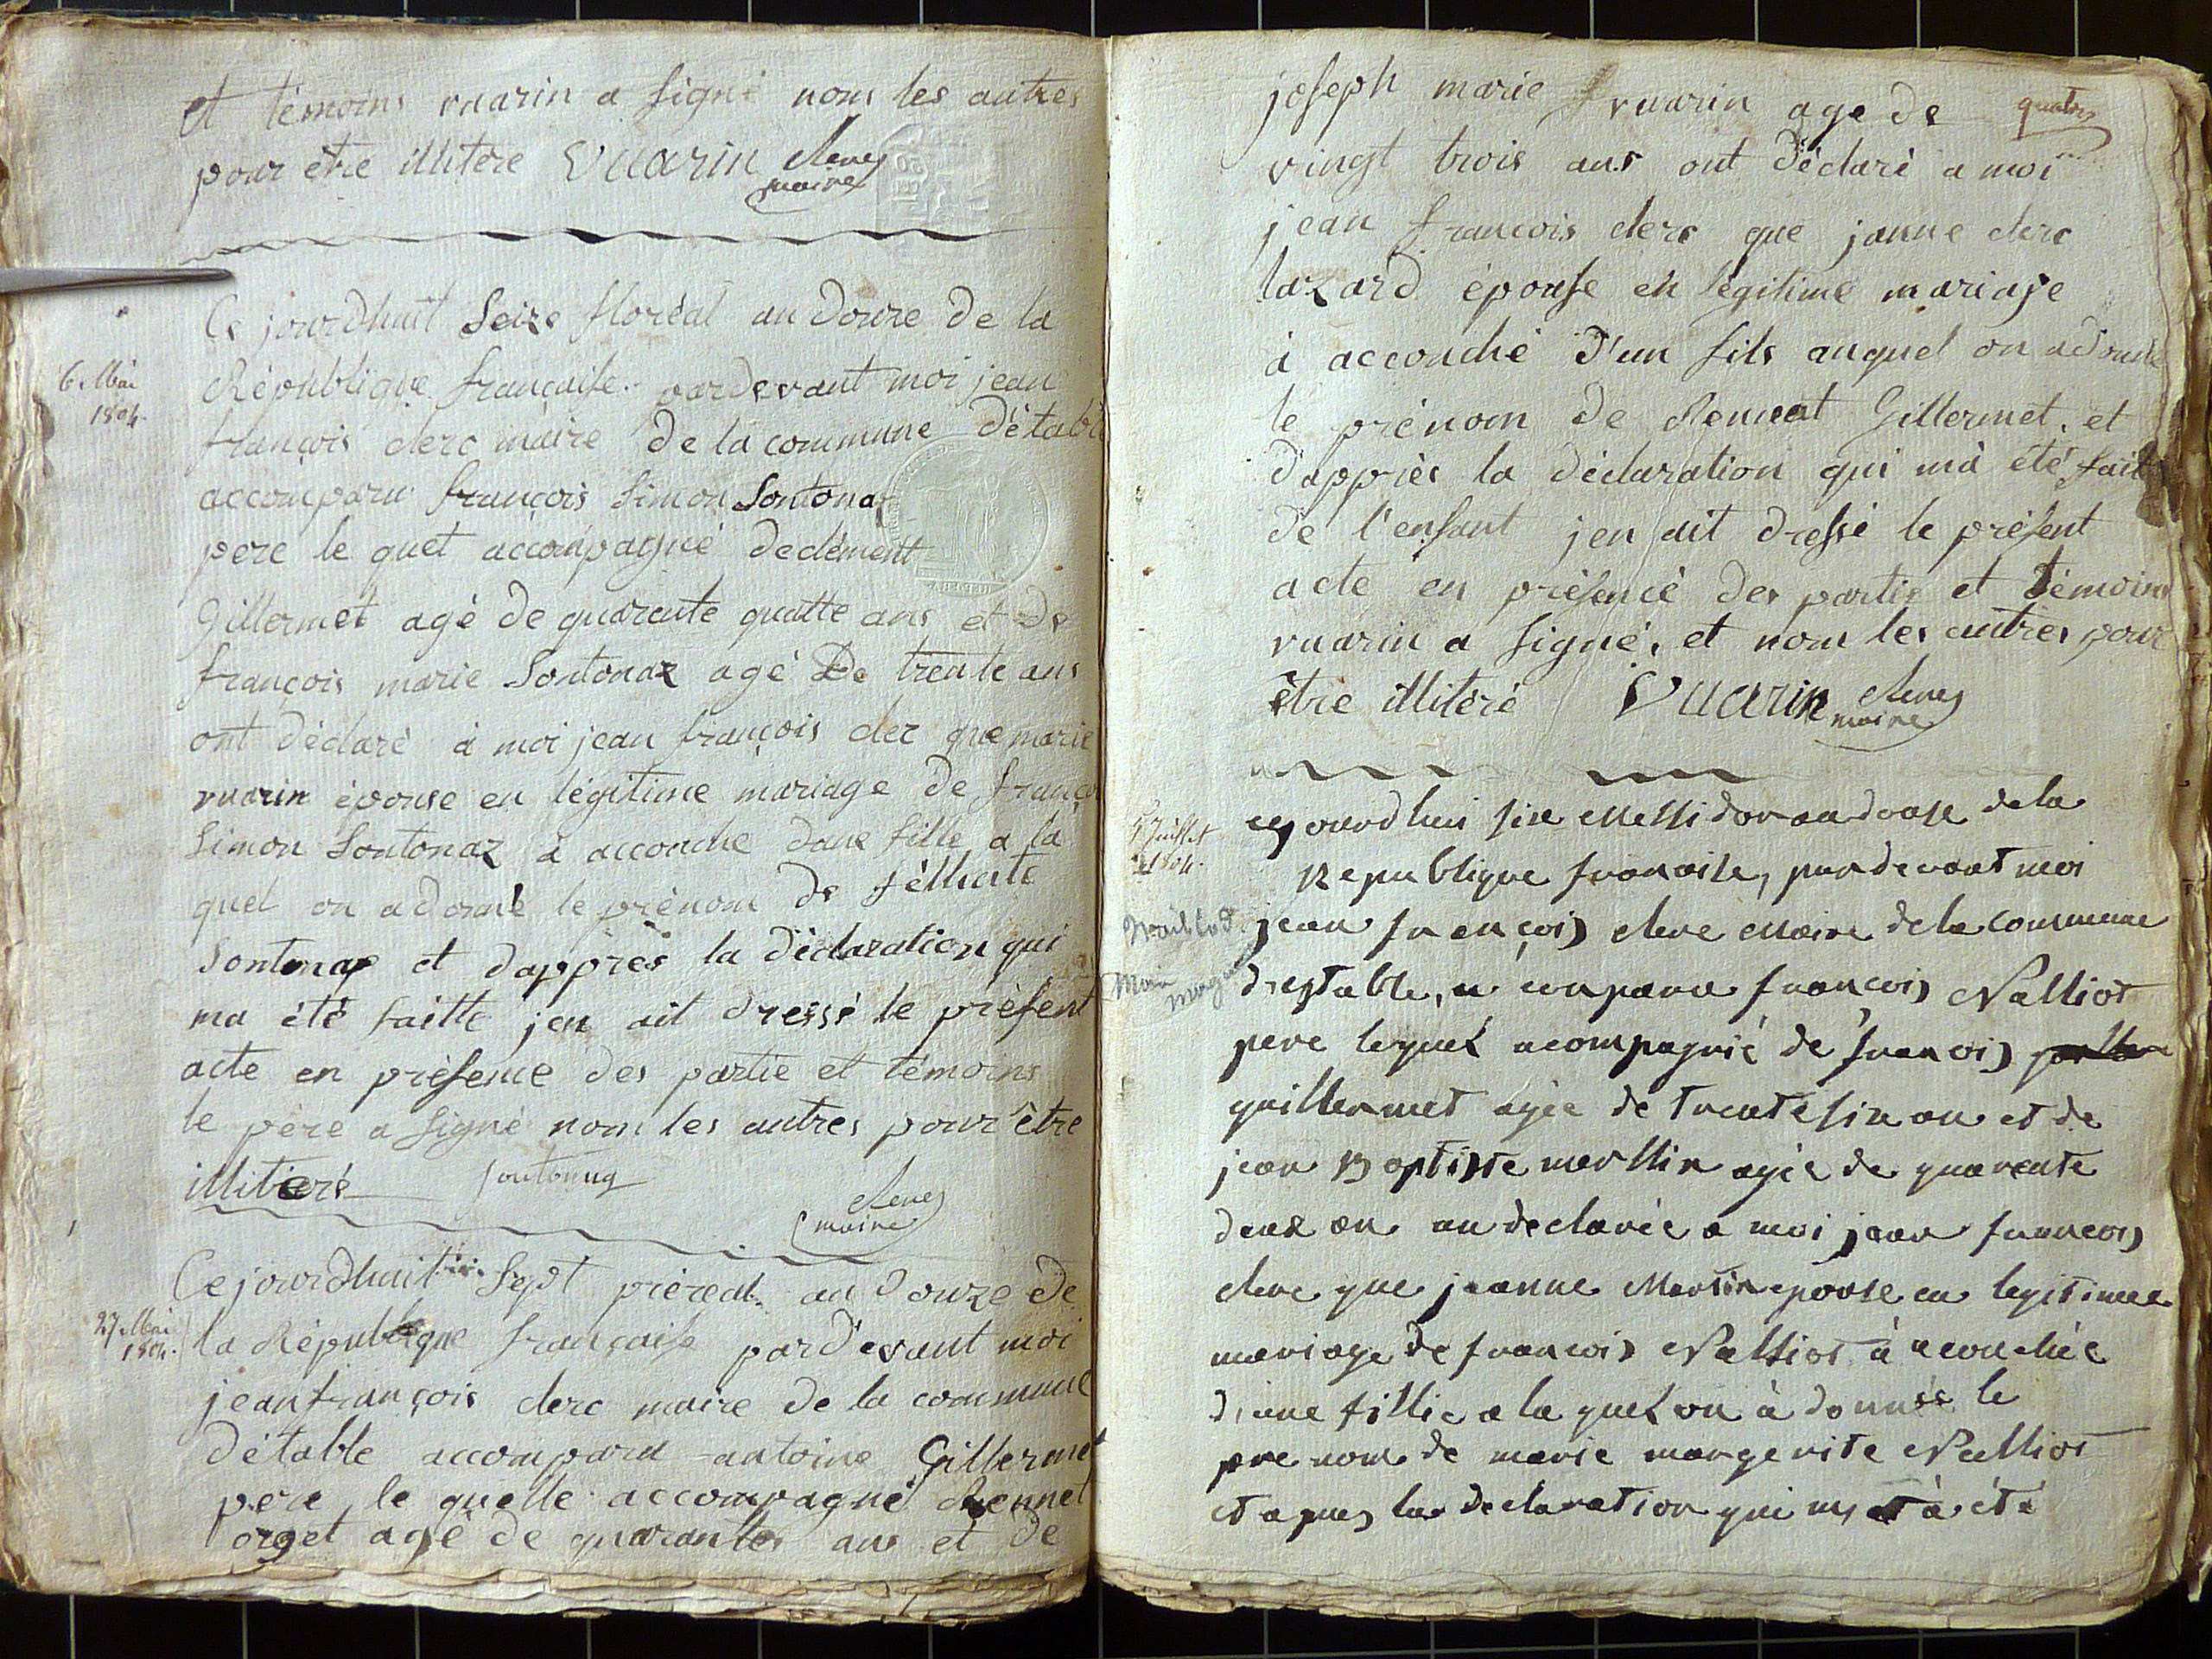 et témoins vuarin a signé nom les autres
pour être illitere Vuarin Clerc
maire
Ce jourdhuit Seize floréal an douze de la
6. Mai
1804.
République française pardevant moi jean
françois clerc maire de la commune détable
accomparu françois Simon Sontonaz
pere le quel accompagné de clément
Gillermet agé de quarente quatte ans et de
françois marie Sontonaz agé De trente ans
ont déclaré à moi jean françois clerc que marie
vuarin épouse en légitime mariage de françois
Simon Sontonaz à accouche dune fille a la
quel on a donné le prénom de
Sontonaz et dapprès la déclaration qui
ma été faitte jen ait dressé le présent
acte en présence des partie et témoins
le père a signé nom les autres pour être
illiteré Sontonaz
Clerc
maire
Ce jourdhuit Sept préreal an douze de
27. Mai
1804.
la République française pardevant moi
jean françois clerc maire de la commune
détable accomparu antoine Gillermet
pere le quelle accompagné
orget agé de quarante ans et de
joseph marie vuarin age de quatre
vingt trois ans ont déclaré a moi
jean françois clerc que janne clerc
lazard épouse en légitime mariage
à accouché d'un fils auquel on a donné
le prénom de Gillermet, et
dapprès la déclaration qui mà été faite
de l'enfant jen ait dressé le présent
acte en présence des partie et témoins
vuarin a signé, et nom les autres pour
être illitéré Vuarin Clerc
maire
cejourdhui sixe Messidor an douse de la
Juillet
1804.
Republique francoise, pardevant moi
jean françois clerc Maire de la Commune
destable, a comparu françois Valliot
pere lequel acompagnié de francois
guillermet agée de trente six an et de
jean Baptiste merllin agée de quarente
deux an an declarée a moi jean francois
clerc que jeanne Mertin epouse en legitimee
mariage de francois Valliot à acouchée
d'une fillie a la quel on à donnée le
prenom de marie margerite Valliot
et apres la declaration qui à été